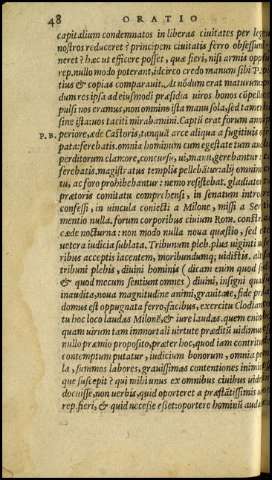 48 ORATIO
capitalium condemnatos in liberas ciuitates per leg
nostros reduceret? principem ciuitatis ferro obsessum
neret? hæc ut efficere posset, quæ fieri, nisi armis oppres
rep. nullo modo poterant, idcirco credo manum sibi P.
tius & copias comparauit. At nōdum erat maturum:
dum res ipsa ad eiusmodi præsidia uiros bonos cōpelle
pulsi nos eramus, non omnino ista manu sola, sed tamen
sine ista: uos taciti mirabamini. Capti erat forum anno
P. B. periore, æde Castoris, tanquā arce aliqua à fugitiuis o
pata: ferebatis. omnia hominum cum egestate tum auda
perditorum clamore, concursu, ui, manu, gerebantur:
ferebatis. magistratus templis pellebātur: alij omnino
tu, ac foro prohibebantur: nemo resistebat. gladiatores
prætoris comitatu comprehensi, in senatum introd
confessi, in uincula coniecti a Milone, missi a Ser
mentio nulla. forum corporibus ciuium Rom. constr
cæde nocturna: non modo nulla noua quæstio, sed et
uetera iudicia sublata. Tribunum pleb. plus uiginti u
ribus acceptis iacentem, moribundumq; uidistis. alt
tribuni plebis, diuini hominis (dicam enim quod s
& quod mecum sentiunt omnes) diuini, insigni quad
inaudita, noua magnitudine animi, grauitate, fide præ
domus est oppugnata ferro, facibus, exercitu Clodian
tu hoc loco laudas Milonē, & iure laudas. quem enim
quam uirum tam immortali uirtute præditū uidimus
nullo præmio proposito, præter hoc, quod iam contritu
contemptum putatur, iudicium bonorum, omnia pe
la, summos labores, grauissimas contentiones inimic
que suscepit? qui mihi unus ex omnibus ciuibus uidet
docuisse, non uerbis, quid oporteret a præstātissimis ui
rep. fieri, & quid necesse esset: oportere hominū audac